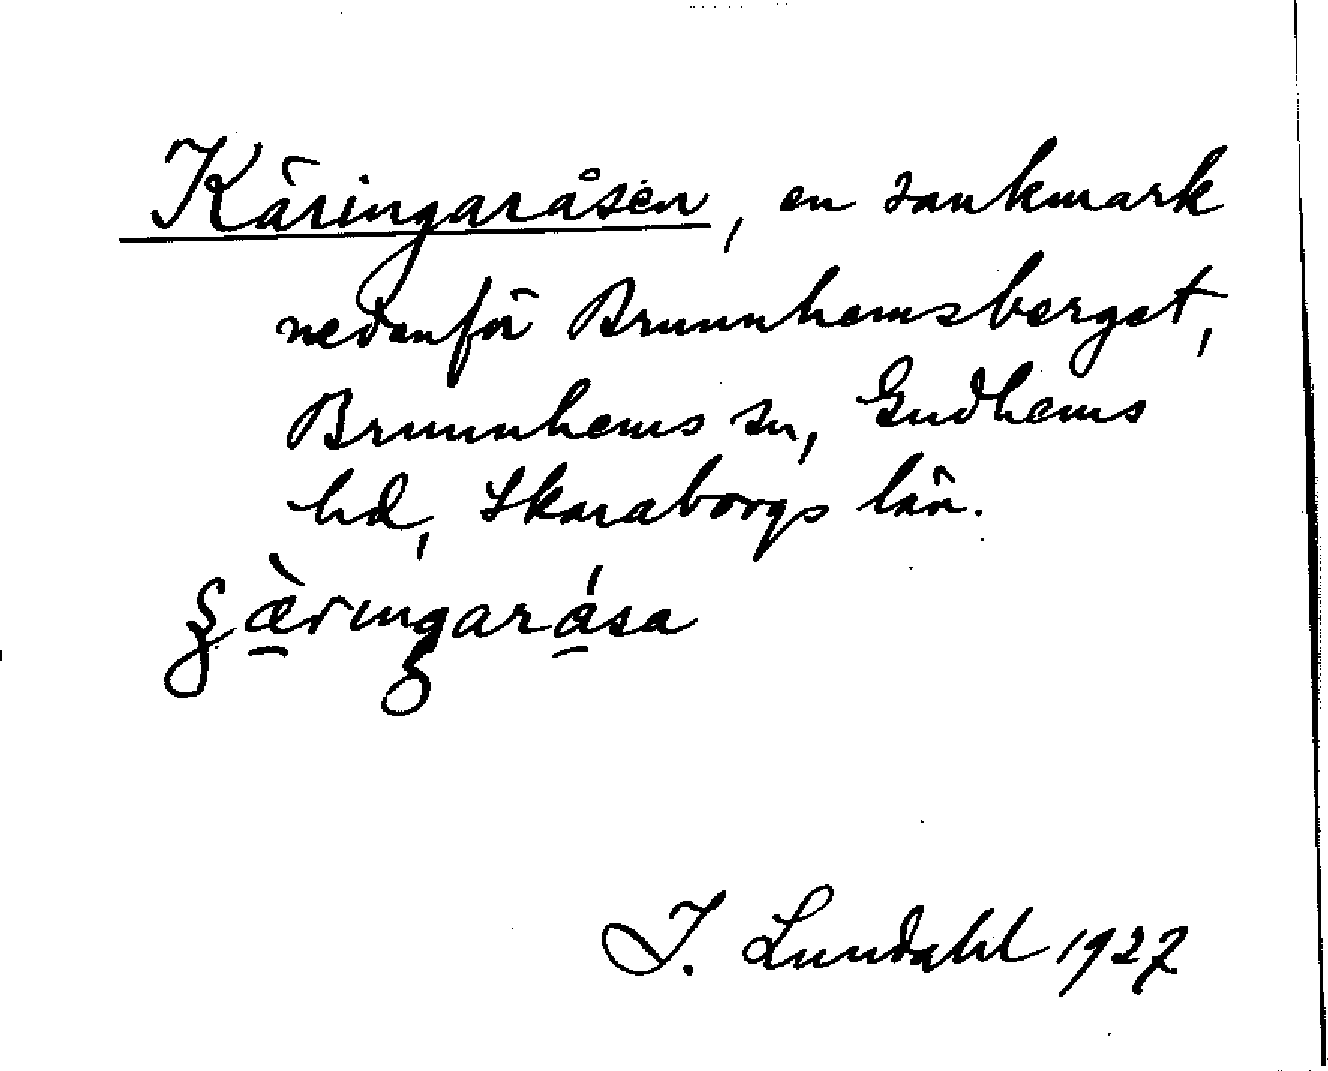 Käringaråsen, en sankmark
nedanför Brunnhemsberget,
Brunnhems sn, Gudhems
hd, Skaraborgs län.
I. Lundahl 1927